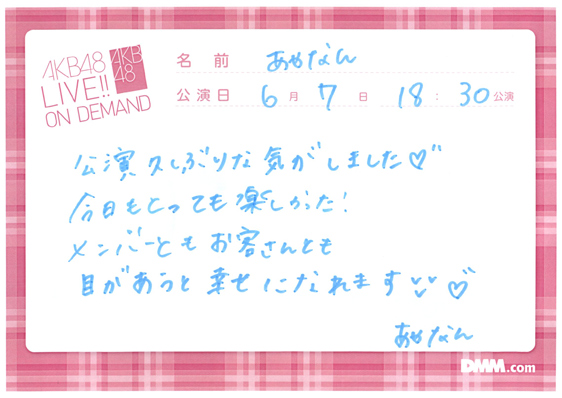 AKB48
LIVE!!
ON DEMAND
AKB
48
名前 あやなん
公演日 6月7日 18:30公演
公演久しぶりな気がしました♡
今日もとっても楽しかった!
メンバーともお客さんとも
目があうと幸せになれます♡
あやなん
DMM.com